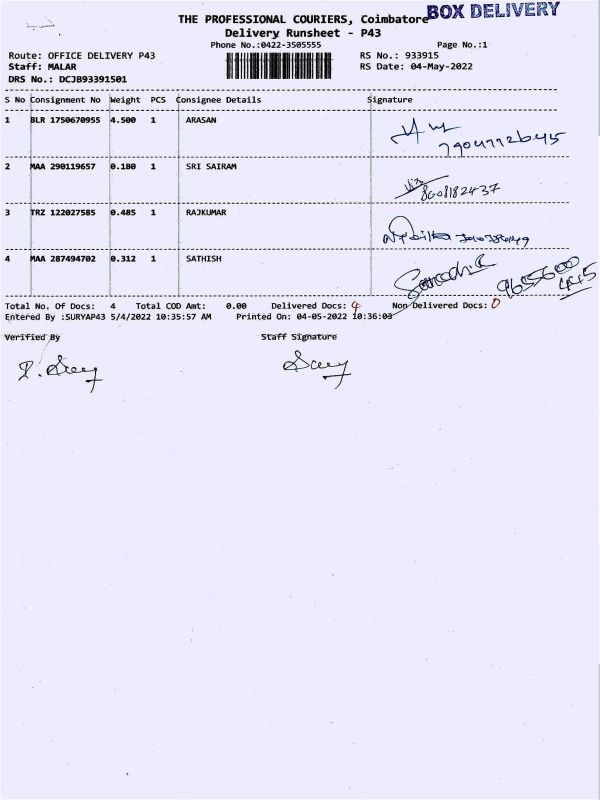 THE PROFESSIONAL COURIERS, Coimbatore BOX DELIVERY
Delivery Runsheet - P43
Phone No.:0422-3505555 Page No.:1
Route: OFFICE DELIVERY P43 RS No.: 933915
Staff: MALAR RS Date: 04-May-2022
DRS No.: DCJB93391501
S No Consignment No Weight PCS Consignee Details Signature
1 BLR 1750670955 4.500 1 ARASAN
2 MAA 290119657 0.180 1 SRI SAIRAM
8608182437
3 TRZ 122027585 0.485 1 RAJKUMAR
4 MAA 287494702 0.312 1 SATHISH
9655600
445
Total No. Of Docs: 4 Total COD Amt: 0.00 Delivered Docs: 4 Non Delivered Docs: 0
Entered By :SURYAP43 5/4/2022 10:35:57 AM Printed On: 04-05-2022 10:36:03
Verified By Staff Signature